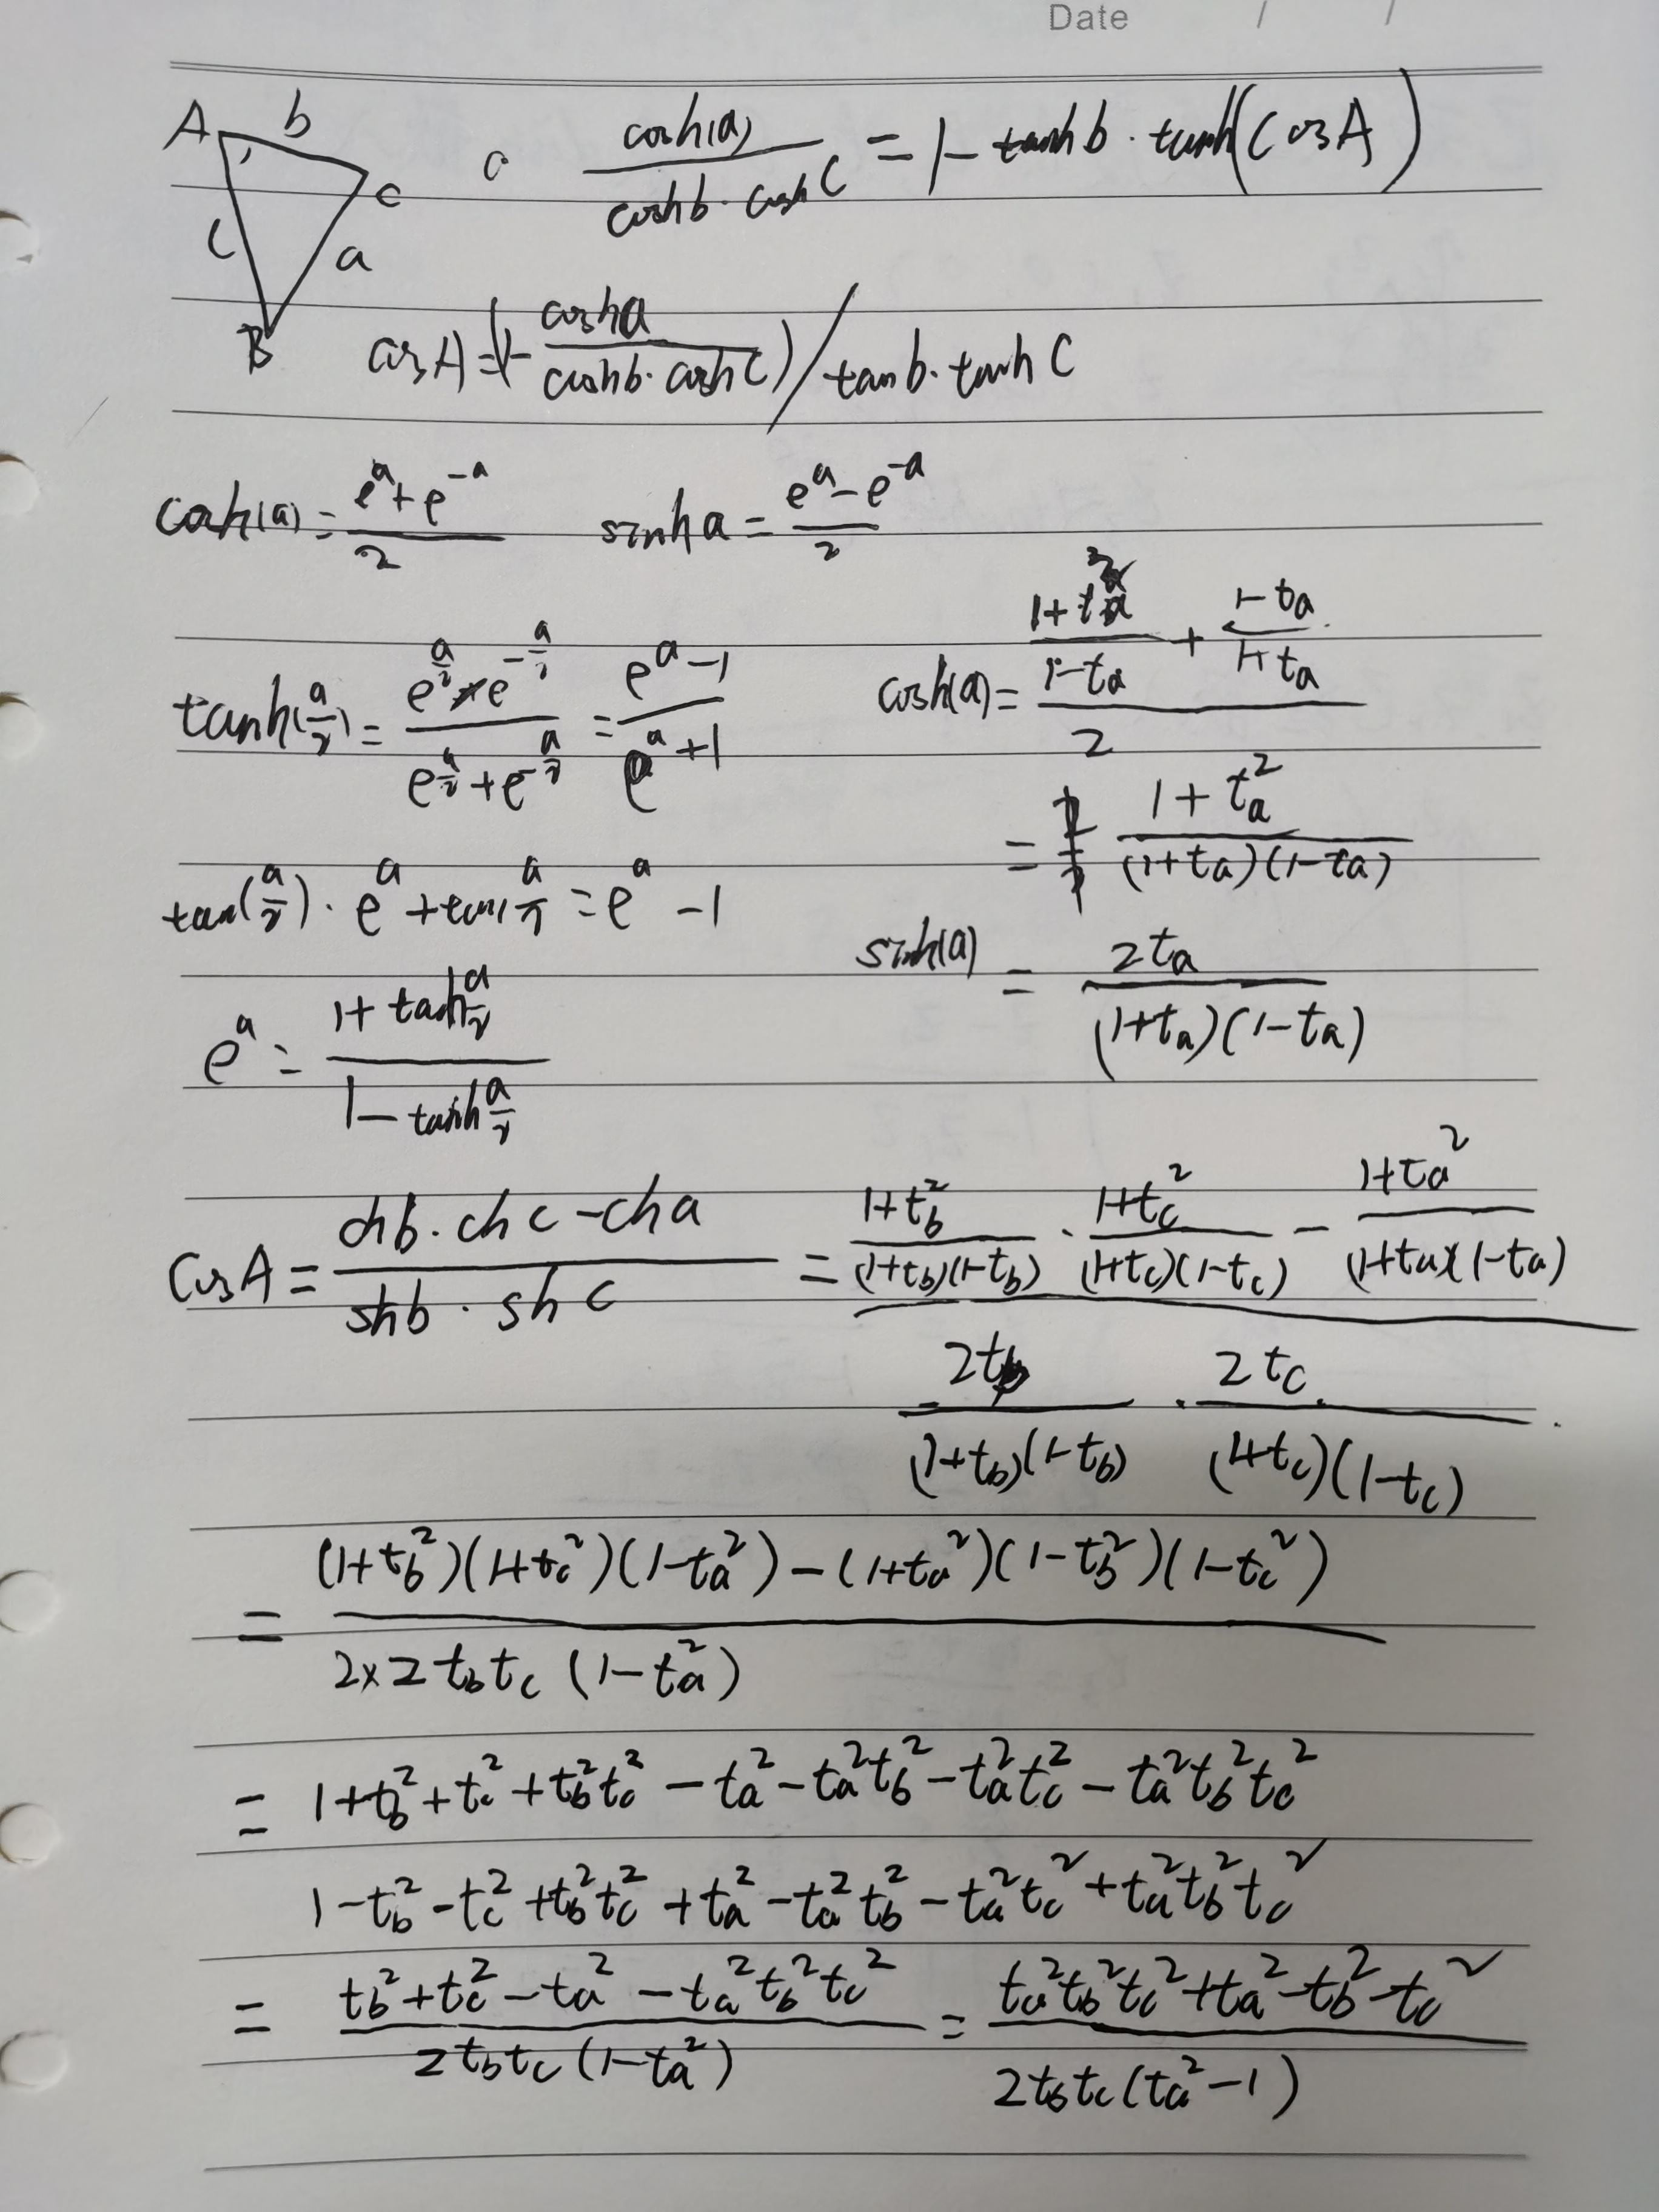 Date / /
A b c
c a
B
cosh(a) / (cosh b · cosh c) = 1 - tanh b · tanh (cos A)
cos A = (1 - cosh a / (cosh b · cosh c)) / tan b · tanh c
cosh(a) = (e^a + e^-a) / 2    sinh a = (e^a - e^-a) / 2
tanh(a/2) = (e^(a/2) - e^(-a/2)) / (e^(a/2) + e^(-a/2)) = (e^a - 1) / (e^a + 1)
cosh(a) = ((1+ta)/(1-ta) + (1-ta)/(1+ta)) / 2
= (1 + ta²) / ((1+ta)(1-ta))
tan(a/2) · e^a + tan a/2 = e^a - 1
sinh(a) = 2ta / ((1+ta)(1-ta))
e^a = (1 + tanh a/2) / (1 - tanh a/2)
cos A = (ch b · ch c - ch a) / (sh b · sh c) = ((1+tb²)/((1+tb)(1-tb)) · (1+tc²)/((1+tc)(1-tc)) - (1+ta²)/((1+ta)(1-ta))) / (2tb/((1+tb)(1-tb)) · 2tc/((1+tc)(1-tc)))
= ((1+tb²)(1+tc²)(1-ta²) - (1+ta²)(1-tb²)(1-tc²)) / (2×2 tb tc (1-ta²))
= 1+tb²+tc²+tb²tc² - ta² - ta²tb² - ta²tc² - ta²tb²tc²
1-tb²-tc²+tb²tc²+ta²-ta²tb²-ta²tc²+ta²tb²tc²
= (tb²+tc²-ta²-ta²tb²tc²) / (2tb tc (1-ta²)) = (ta²tb²tc²+ta²-tb²-tc²) / (2tb tc (ta²-1))